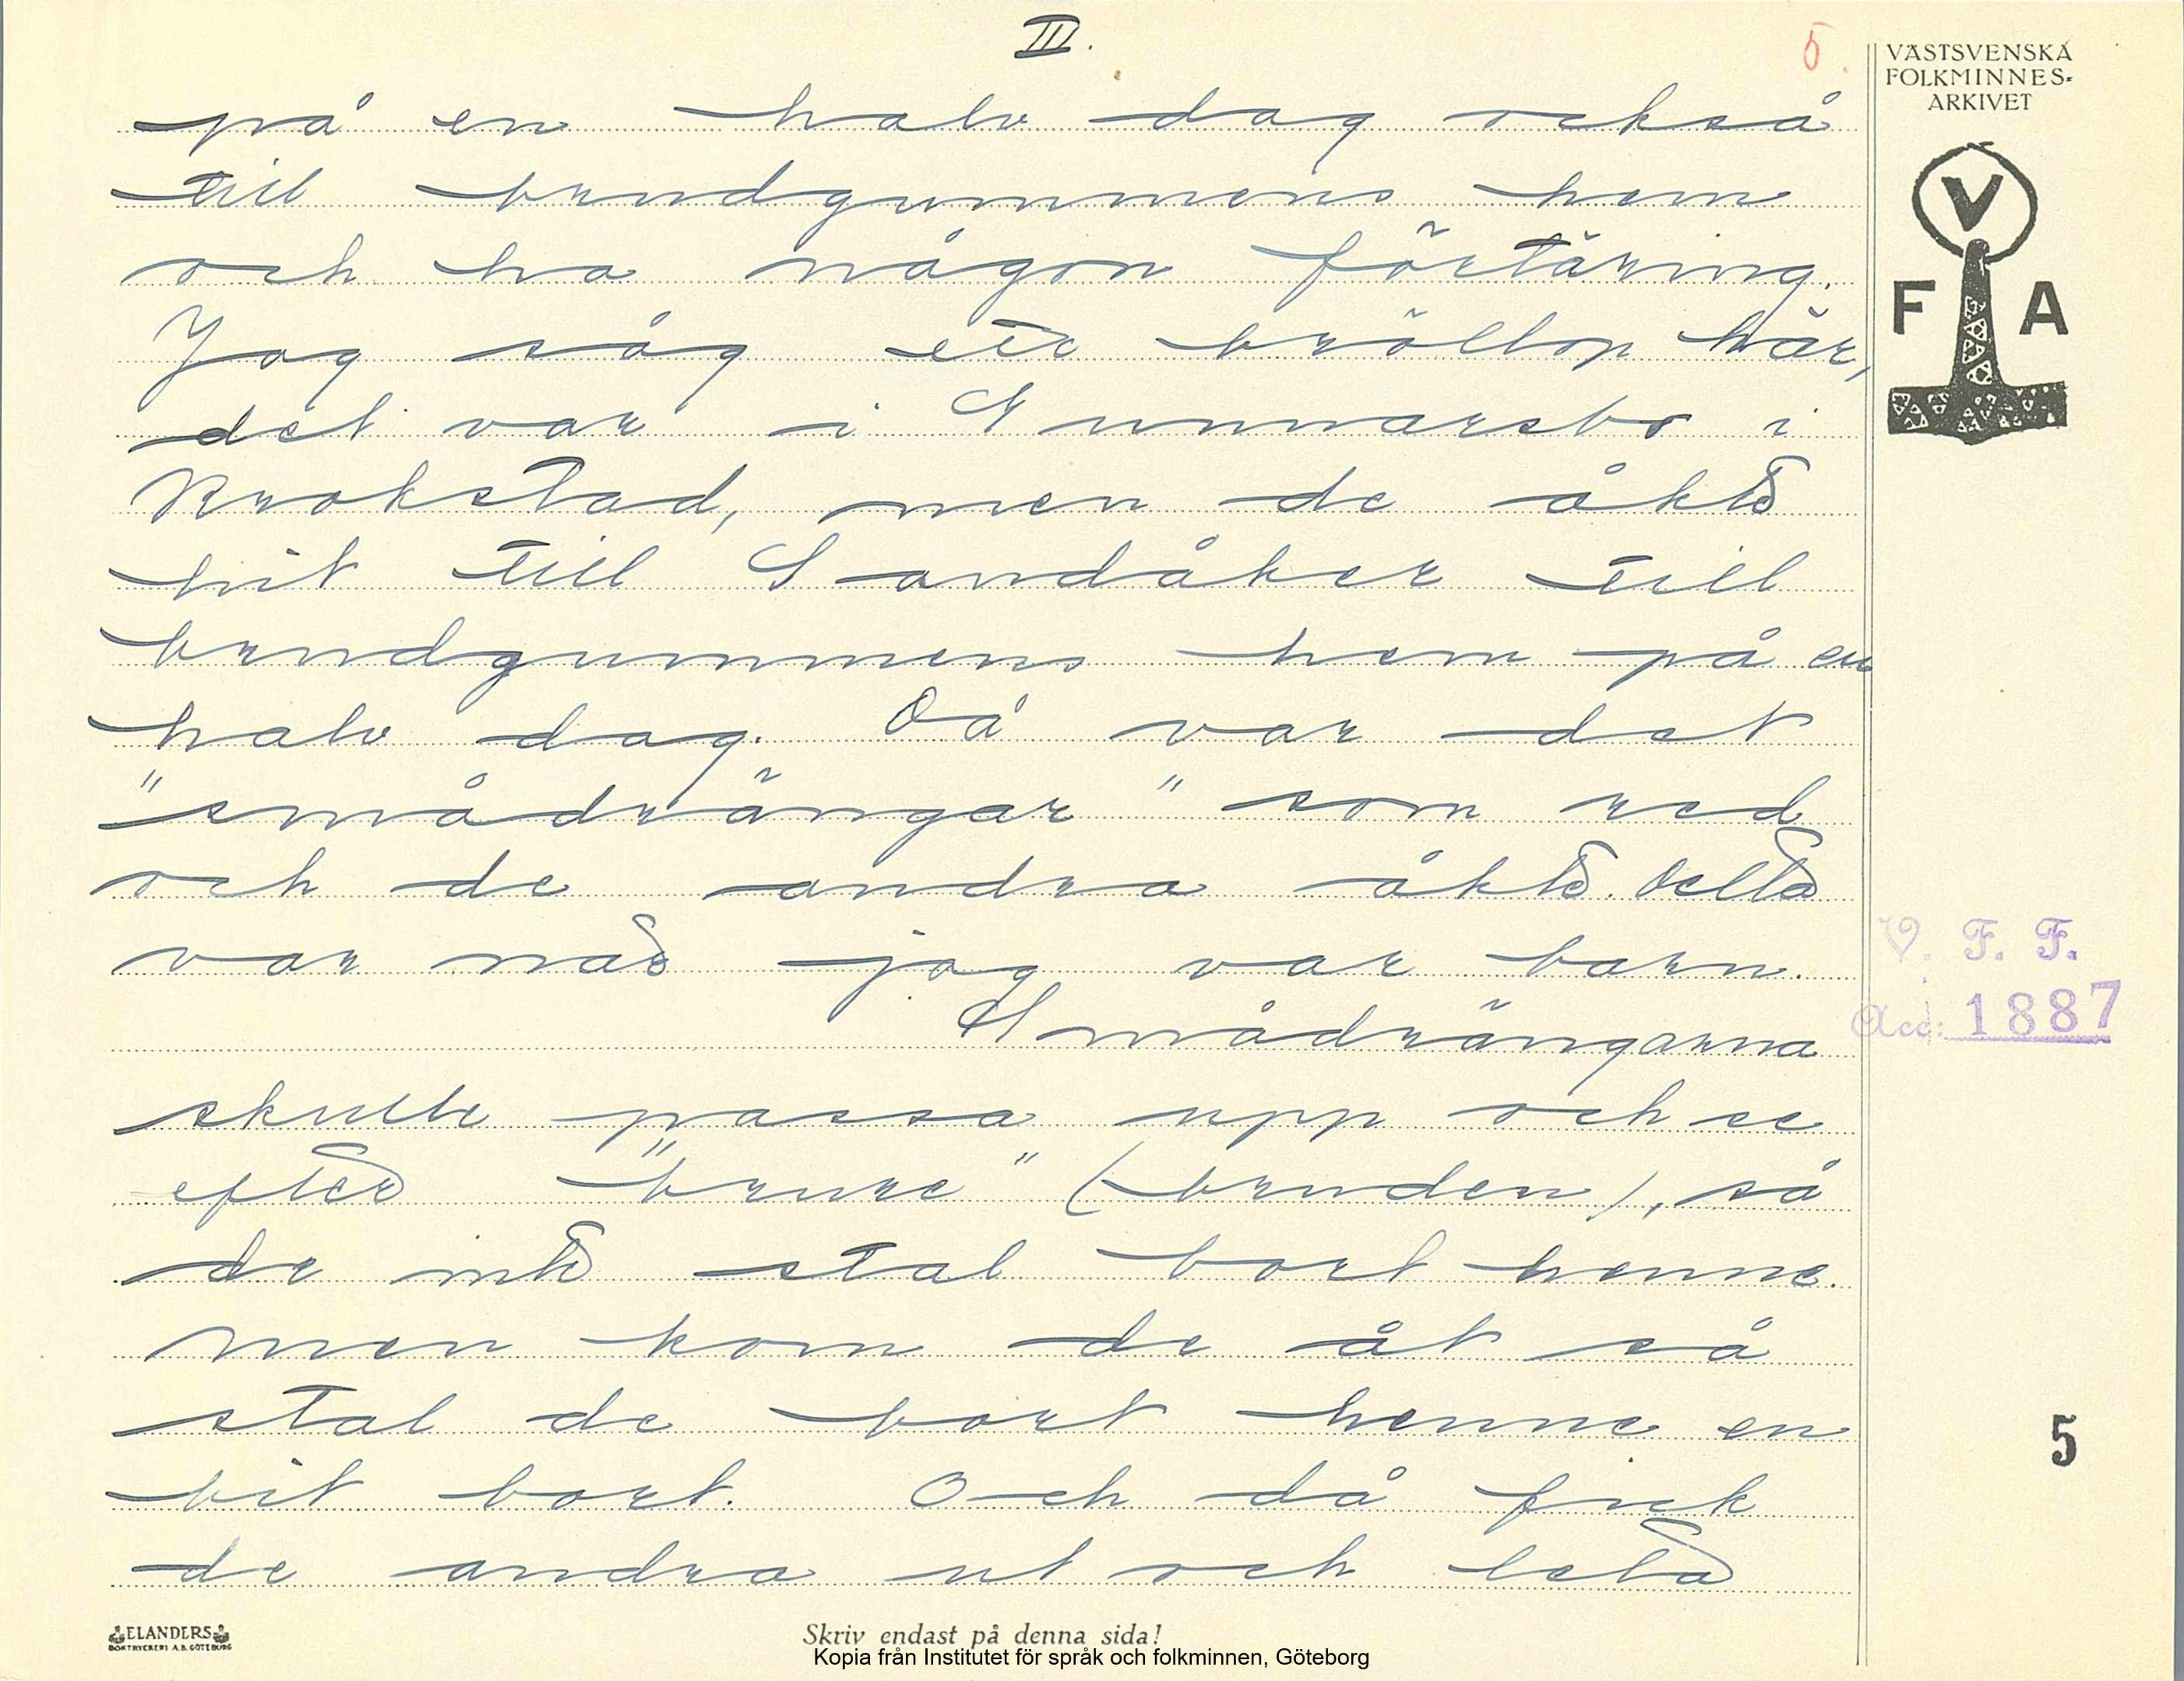 III.
5.
VÄSTSVENSKA
FOLKMINNES-
ARKIVET
V
F A
på en halv dag också
till brudgummens hem
och ha någon förtäring.
Jag såg ett bröllop här,
det var i Gunnarsbo i
Krokstad, men de åkte
hit till Sandåker till
brudgummens hem på en
halv dag. Då var det
"smådrängar" som red
och de andra åkte. Detta
var när jag var barn.
Smådrängarna
skulle passa upp och se
efter "brure" (bruden), så
de inte stal bort henne.
Men kom de åt så
stal de bort henne en
bit bort. Och då fick
de andra ut och leta
V. F. F.
Acc: 1887
5
ELANDERS
BOKTRYCKERI A.B. GÖTEBORG
Skriv endast på denna sida!
Kopia från Institutet för språk och folkminnen, Göteborg